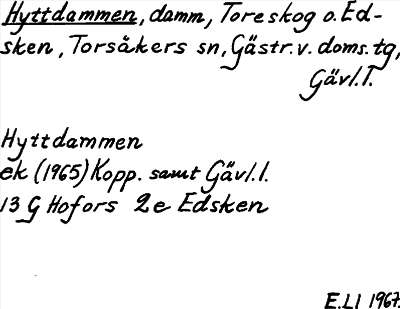 Hyttdammen, damm, Toreskog o. Ed-
sken, Torsåkers sn, Gästr. v. doms. tg,
Gävl. l.
Hyttdammen
ek (1965) Kopp. samt Gävl. l.
13 G Hofors 2e Edsken
E.LI 1967.